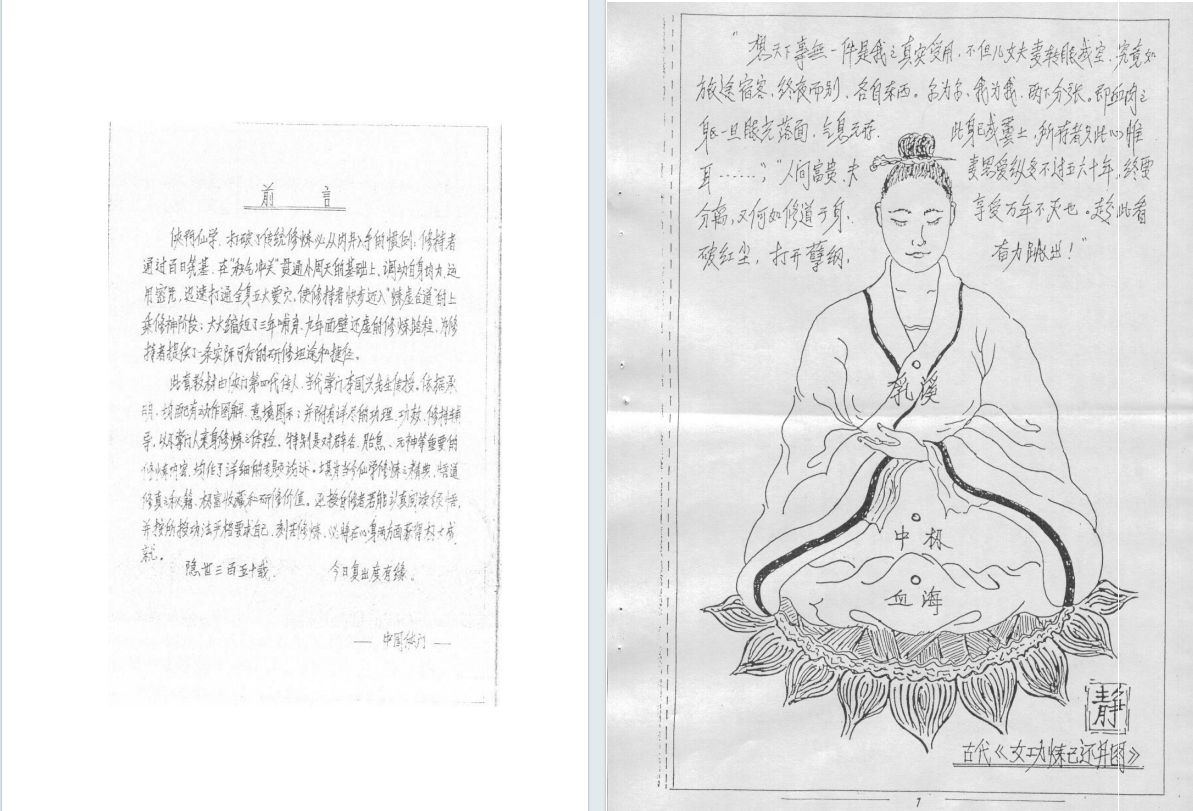 前言
仙学，打破了传统修炼必从肉身入手的惯例；修持者
通过百日筑基，在"和合冲关"贯通小周天的基础上，调动自身内丸，运
用密咒，迅速打通全身五大要穴，使修持者快步迈入"炼虚合道"的上
乘修神阶段；大大缩短了三年哺育、九年面壁还虚的修炼路程，为修
持者提供了一条实际可行的研修坦途和捷径。
此套教材由门第四代传人、当代掌门李国兴先生传授。依据承
明，均配有动作图解、意境图示；并附有详尽的功理、功效、修持辅
导，以及掌门人亲身修炼之体验。特别是对辟谷、胎息、元神等重要的
修炼内容，均作了详细的专题论述。堪称当今仙学修炼之精典，悟道
修真之秘籍，极富收藏和研修价值。还授自修者若能认真阅读领悟，
并按所授功法严格要求自己，刻苦修炼，必将在心身两方面获得极大成
就。
隐世三百五十载，今日复出度有缘。
— 中国门 —
"想天下事無一件是我之真实受用，不但儿女夫妻转眼成空，究竟如
旅途宿客，终夜而别，各自东西。尔为尔，我为我，两下分张。即血肉之
身，一旦眼光落面，气息无存，此身已成粪土，所存者久此心惟
耳……"；"人间富贵夫妻恩爱纵多不过五六十年，终要
分离，又何如修道于身，享受万年不灭也。趁此看
破红尘，打开孽纲，奋力跳出！"
乳溪
中极
血海
静
古代《女功炼己还丹图》
1